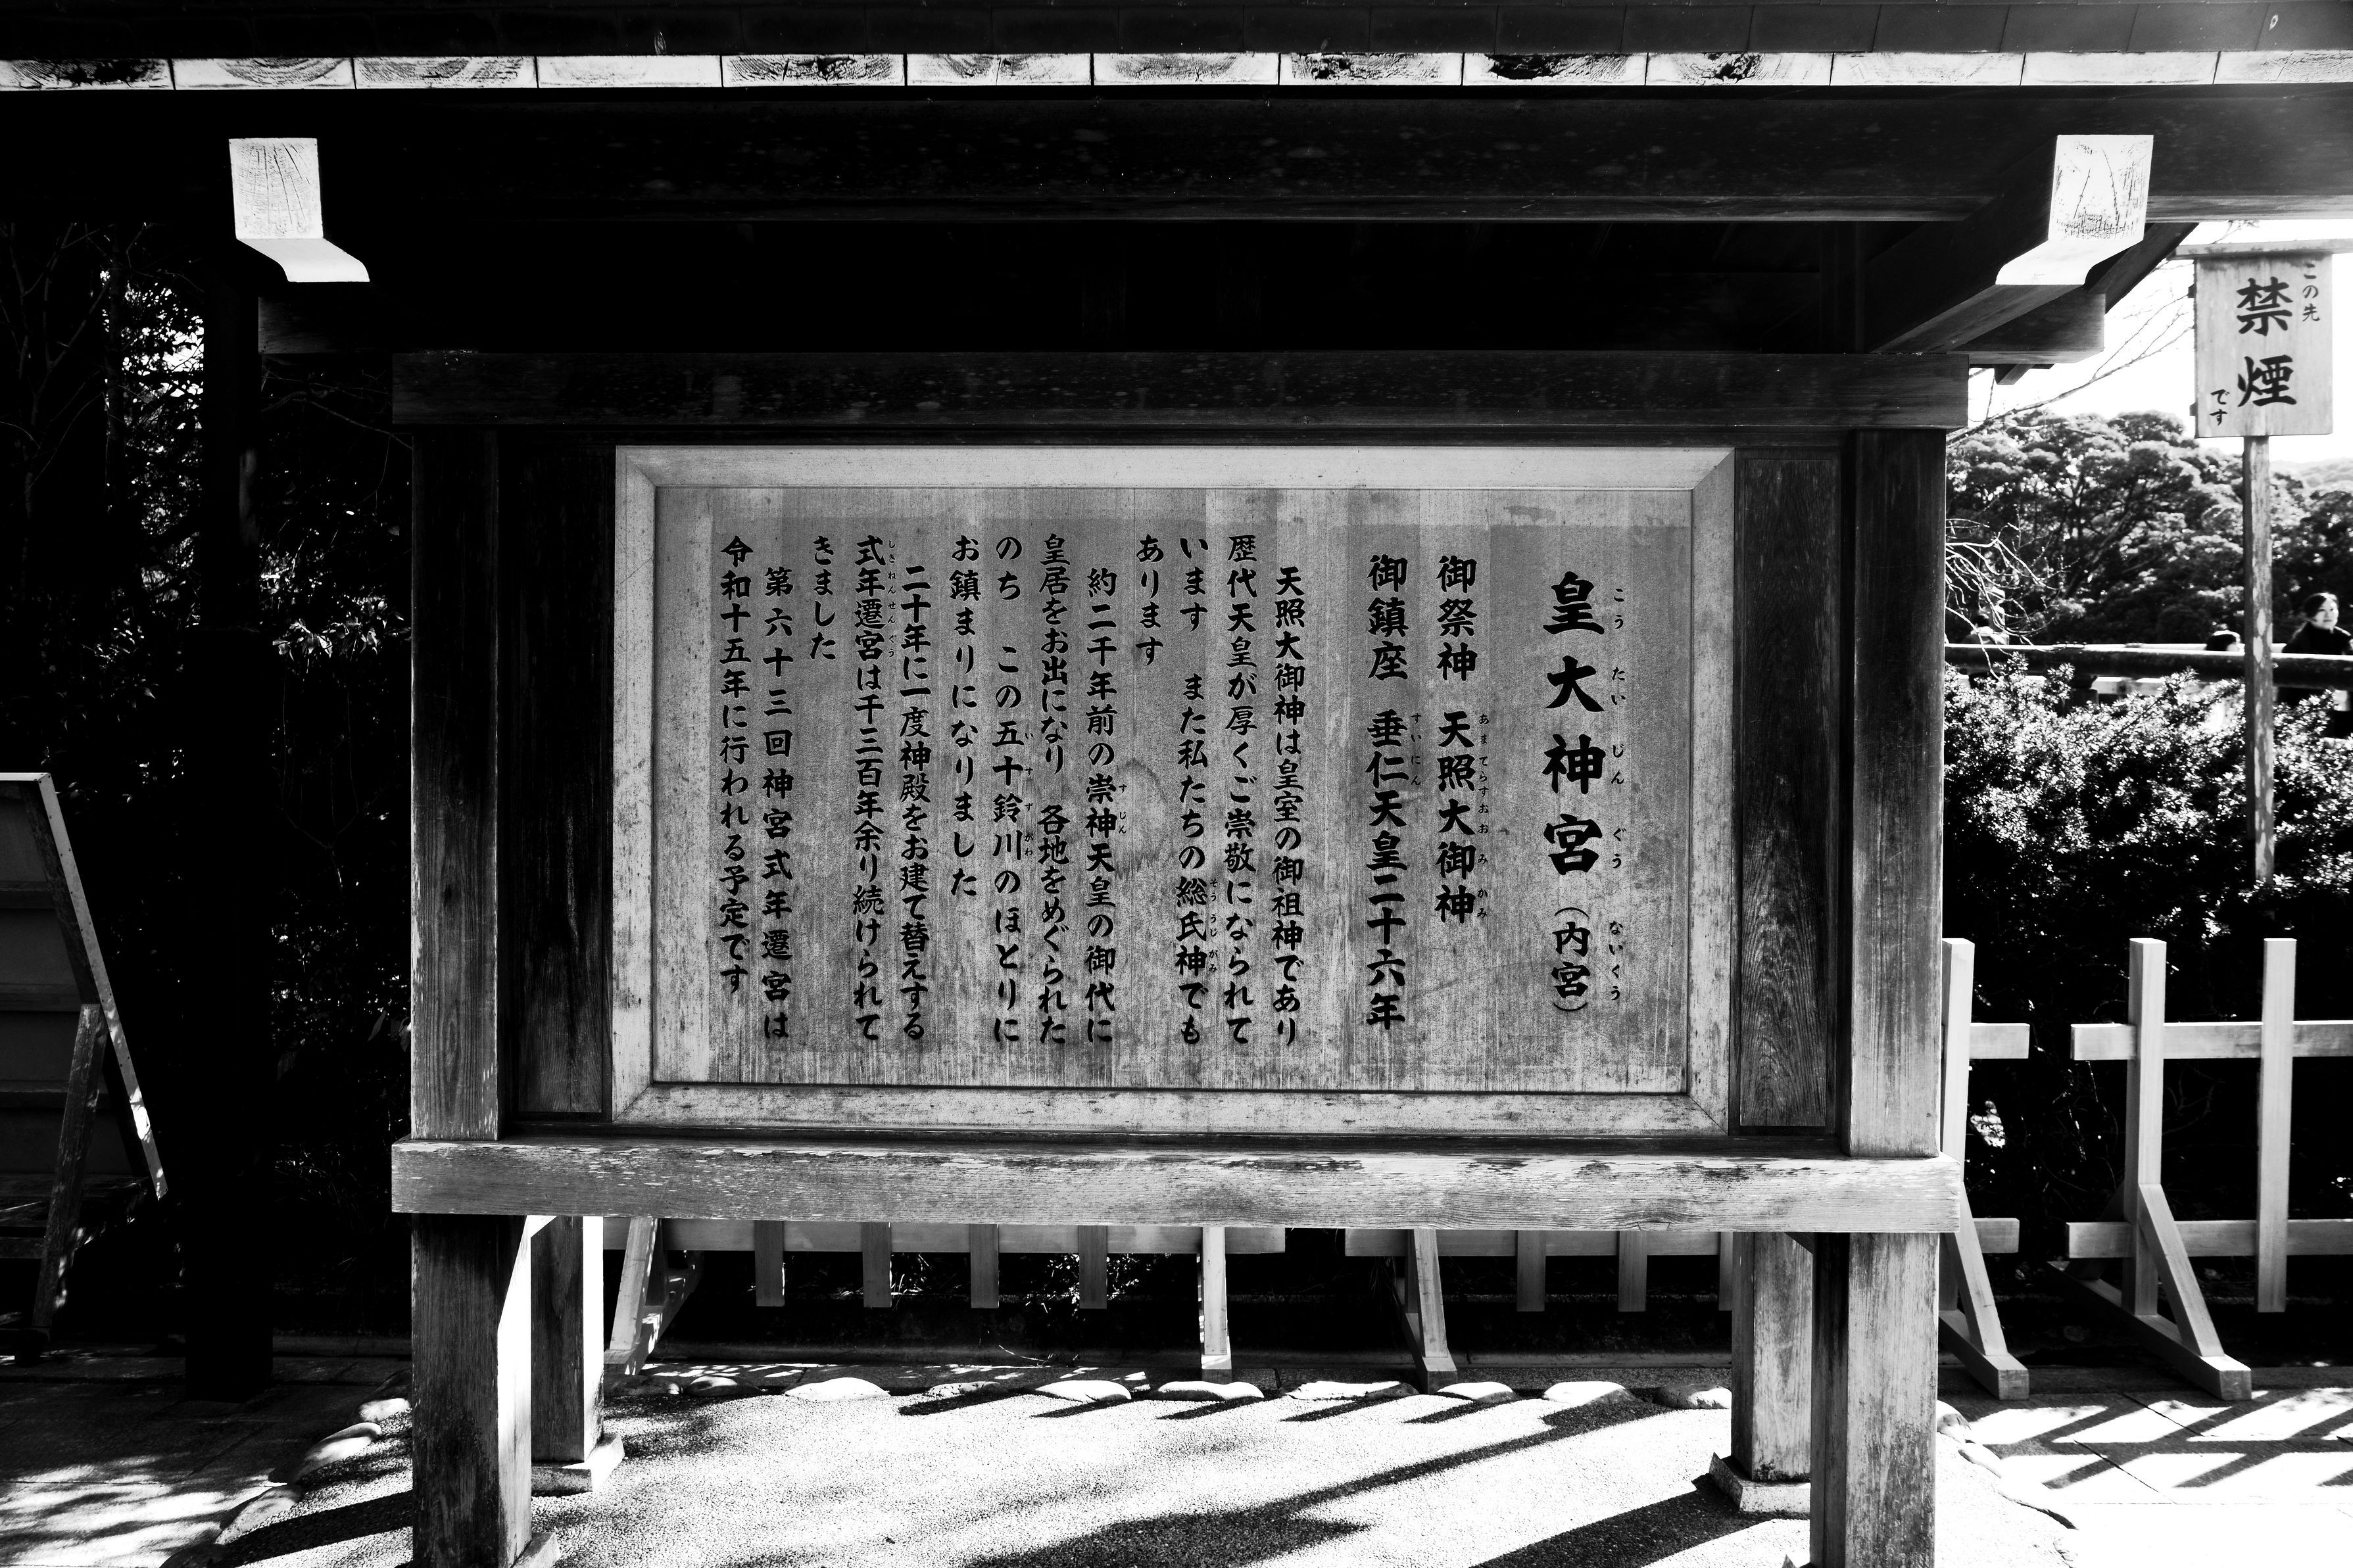 皇大神宮（内宮）
こうたいじんぐう ないくう
御祭神 天照大御神
あまてらすおおみかみ
御鎮座 垂仁天皇二十六年
すいにん
天照大御神は皇室の御祖神であり
歴代天皇が厚くご崇敬になられて
います また私たちの総氏神でも
そううじがみ
あります
約二千年前の崇神天皇の御代に
すじん
皇居をお出になり 各地をめぐられた
のち この五十鈴川のほとりに
いすずがわ
お鎮まりになりました
二十年に一度神殿をお建て替えする
式年遷宮は千三百年余り続けられて
しきねんせんぐう
きました
第六十三回神宮式年遷宮は
令和十五年に行われる予定です
この先
禁煙
です